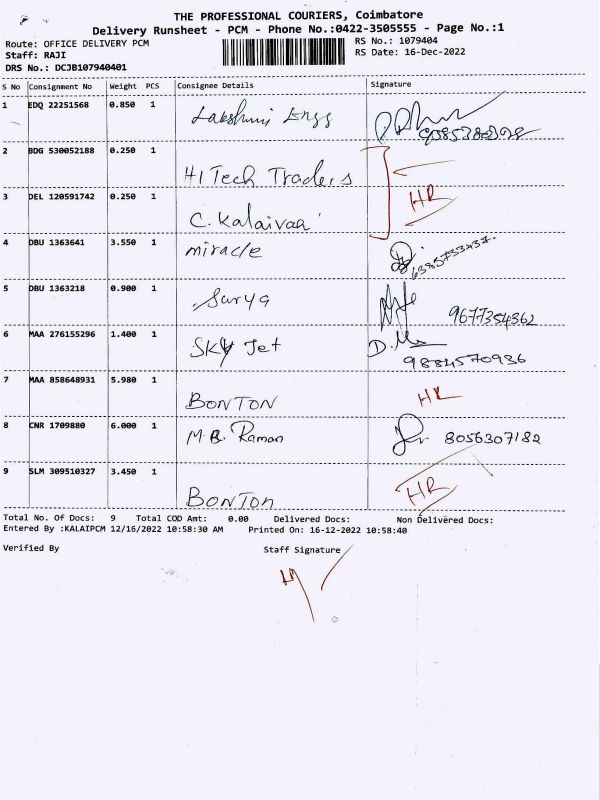 THE PROFESSIONAL COURIERS, Coimbatore
Delivery Runsheet - PCM - Phone No.:0422-3505555 - Page No.:1
Route: OFFICE DELIVERY PCM
Staff: RAJI
DRS No.: DCJB107940401
RS No.: 1079404
RS Date: 16-Dec-2022
S No Consignment No Weight PCS Consignee Details Signature
1 EDQ 22251568 0.850 1 Lakshmi Engg
2 BDG 530052188 0.250 1 HI Tech Traders
3 DEL 120591742 0.250 1 C. Kalaivaa HR
4 DBU 1363641 3.550 1 miracle 6385733437.
5 DBU 1363218 0.900 1 Surya 9677354362
6 MAA 276155296 1.400 1 SKY Jet 9884570936
7 MAA 858648931 5.980 1 BONTON HR
8 CNR 1709880 6.000 1 M.B. Raman 8056307182
9 SLM 309510327 3.450 1 BONTON HR
Total No. Of Docs: 9 Total COD Amt: 0.00 Delivered Docs: Non Delivered Docs:
Entered By :KALAIPCM 12/16/2022 10:58:30 AM Printed On: 16-12-2022 10:58:40
Verified By Staff Signature